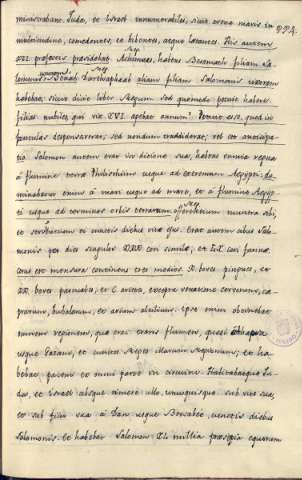 ministrabant. Juda, et Israel innumerabiles, sicut arena maris in 224.
multitudine, comedentes, et bibentes, atque laetantes. His autem
XII. praefectis providebat Achimaas, habens Basemath filiam Salomonis
uxorem. Taphaeth aliam filiam Salomonis uxorem
habebat, sicut dicit liber Regum. Sed quomodo potuit habere
filias nubiles, qui vix XVI. agebat annum?
desponsatas, sed nondum traditas, vel est anticipatio
Salomon autem erat in dicione sua, habens omnia regna
a flumine terrae Philisthiim usque ad extremum Aegypti: dominabatur
enim a mari usque ad mare, et a flumine
usque ad terminos orbis terrarum, offerentium munera sibi,
et servientium ei cunctis diebus vitae ejus. Erat autem cibus Salomonis
per dies singulos XXX cori similae, et LX. cori farinae.
Corus est mensura continens X. boves pingues, et
XX. boves pascuales, et C. arietes, excepta venatione cervorum, caprarum,
bubalorum, et avium altilium. Ipse enim obtinebat
omnem regionem, quae erat trans flumen, quasi a Thapsa
usque Gazam, et cunctos Reges illarum regionum, et habebat
pacem ex omni parte in circuitu. Habitabatque Juda,
et Israel absque timore ullo, unusquisque sub vite sua,
et sub ficu sua a Dan usque Bersabee, cunctis diebus
Salomonis. Et habebat Salomon XL millia praesepia equorum